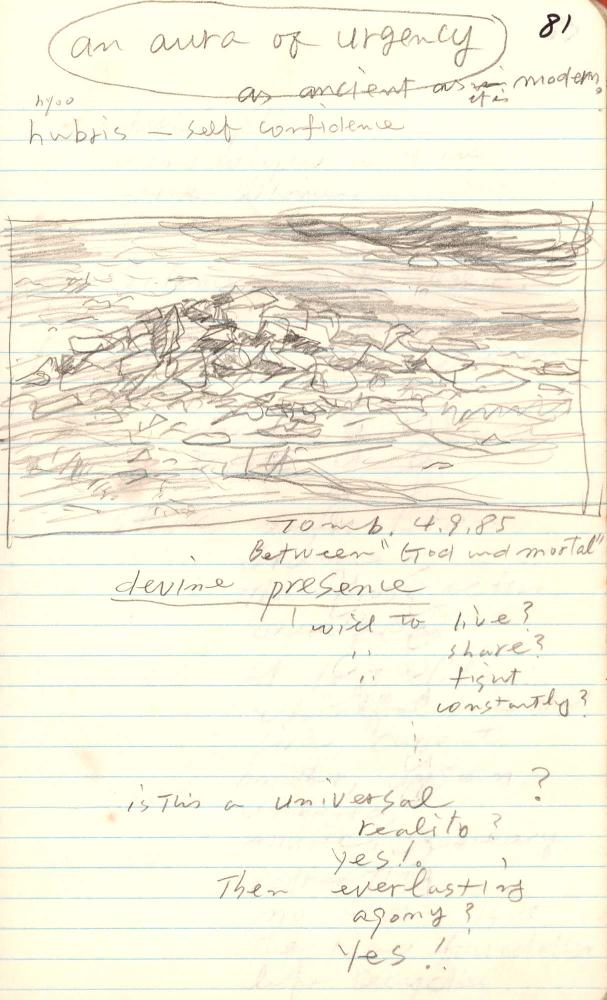 81
an aura of urgency
as ancient as it is modern.
hyoo
hubris — self confidence
Tomb. 4.9.85
Between "God and mortal"
devine presence
will to live?
" share?
" fight
constantly?
is This a universal ?
realito?
yes!.
Then everlasting
agony?
Yes!!